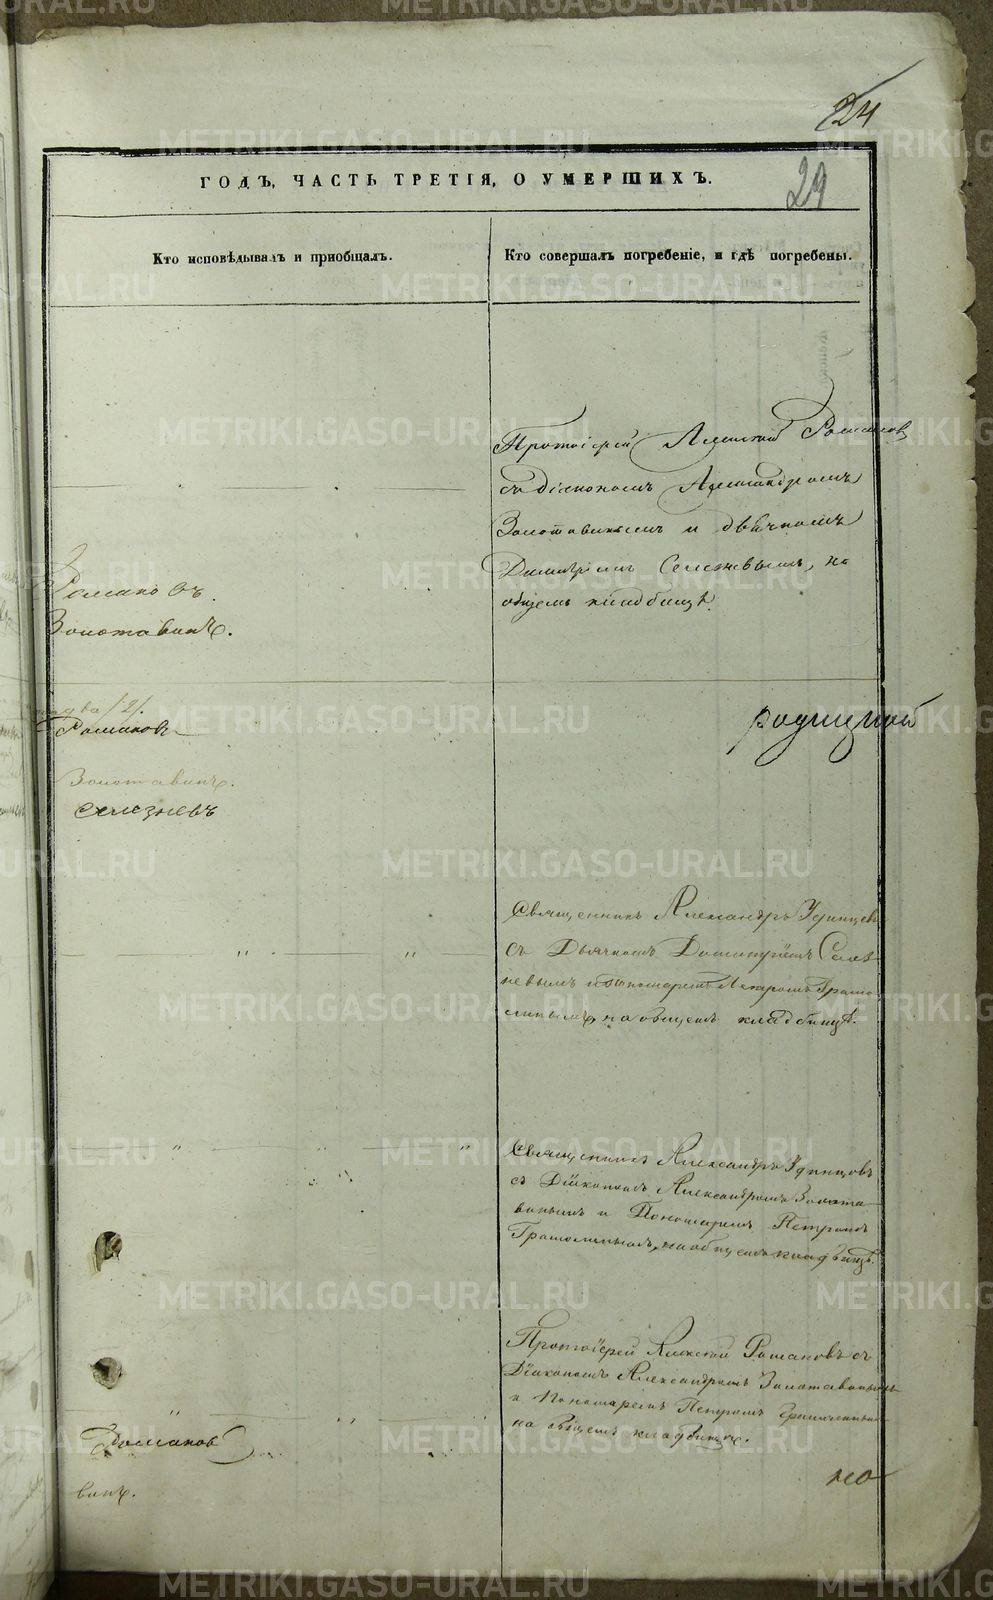 24
ГОДЪ, ЧАСТЬ ТРЕТІЯ, О УМЕРШИХЪ.
29
Кто исповѣдывалъ и пріобщалъ.
Кто совершалъ погребеніе, и гдѣ погребены.
Протоіерей Алексей Романов
съ діакономъ Александромъ
Золотавинымъ и дьячкомъ
Димитріемъ Селезневымъ, на
общемъ кладбищѣ.
Романовъ.
Золотавинъ.
/2/.
Романовъ
Золотавинъ.
Селезневъ
Священникъ Александръ Удинцевъ
съ Дьячкомъ Димитріемъ Селез
невымъ и Пономаремъ Петромъ
на общемъ кладбищѣ.
Священникъ Александръ Удинцовъ
съ Діакономъ Александромъ Золота
винымъ и Пономаремъ Петромъ
на общемъ кладбищѣ.
Протоіерей Алексей Романовъ съ
Діакономъ Александромъ Золотавинымъ
и Пономаремъ Петромъ
на общемъ кладбищѣ.
Романов
винъ.
по
METRIKI.GASO-URAL.RU